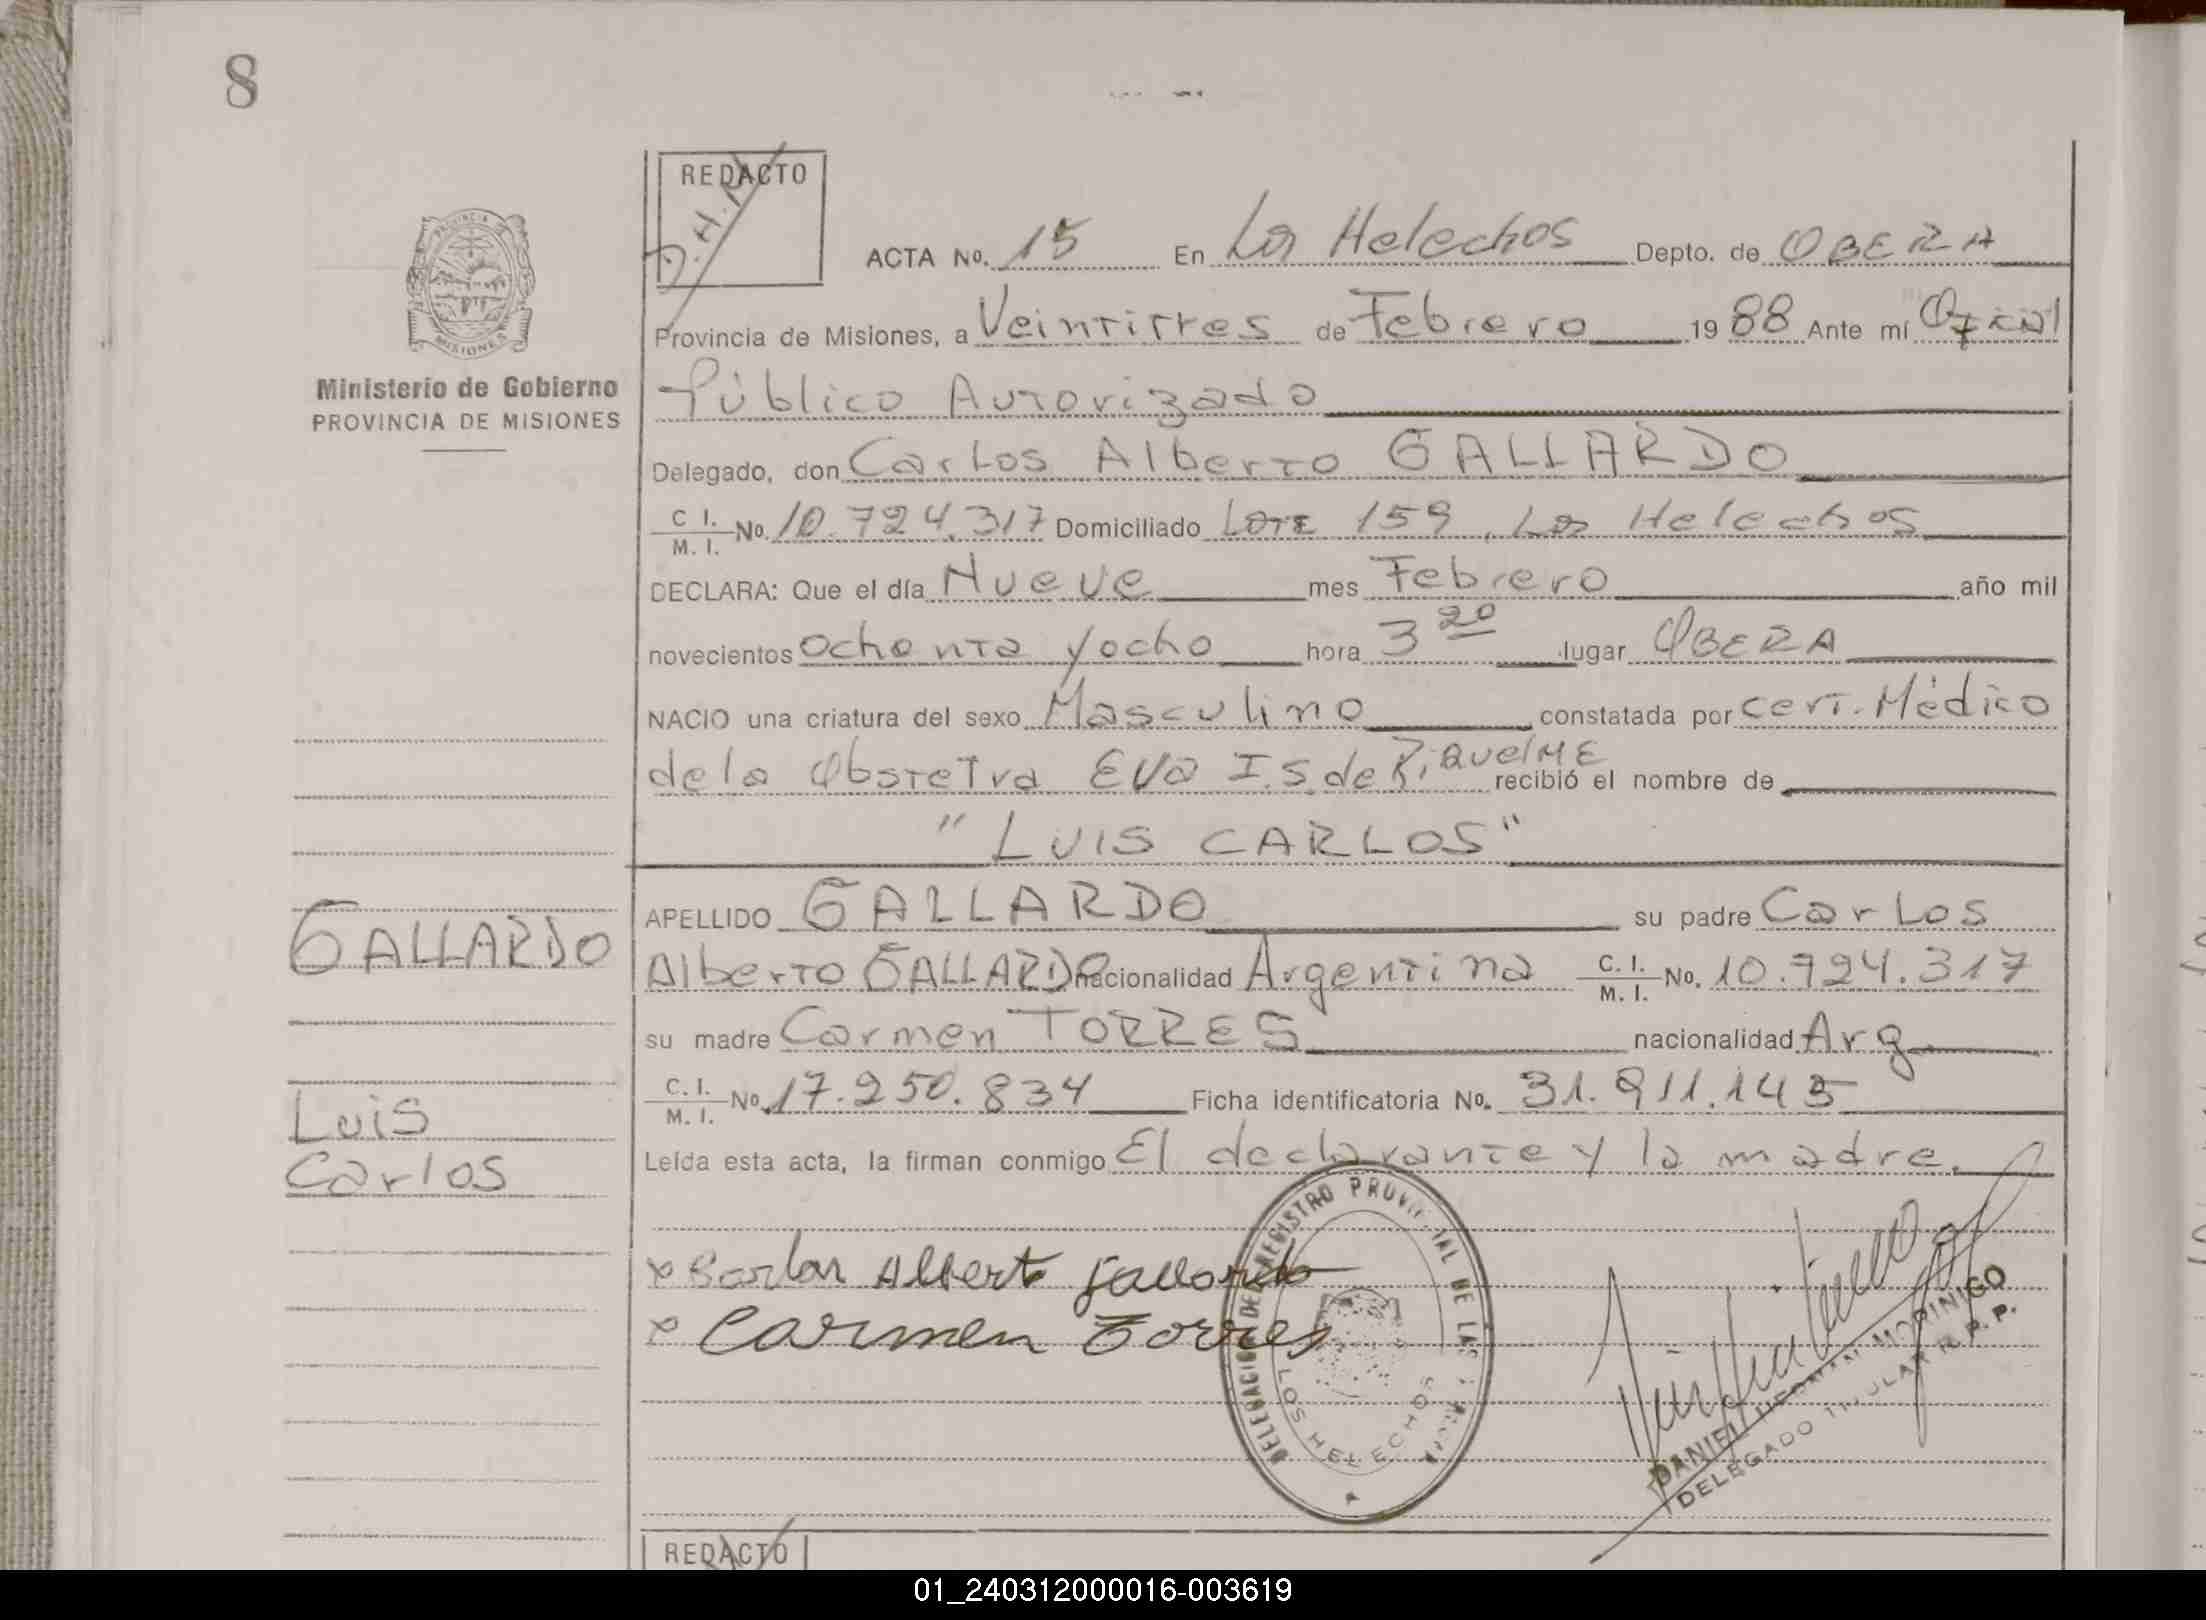 8
REDACTO
D.H.M
ACTA No. 15 En Los Helechos Depto. de OBERA
Provincia de Misiones, a Veintitres de Febrero 1988 Ante mí Oficial
Público Autorizado
Delegado, don Carlos Alberto GALLARDO
C I. / M. I. No. 10.724.317 Domiciliado Lote 159, Los Helechos
DECLARA: Que el día Nueve mes Febrero año mil
novecientos ochenta y ocho hora 3 20 lugar OBERA
NACIO una criatura del sexo Masculino constatada por cert. Médico
de la Obstetra Eva I.S. de RiquelME recibió el nombre de
"LUIS CARLOS"
APELLIDO GALLARDO su padre Carlos
Alberto GALLARDO nacionalidad Argentina C. I. / M. I. No. 10.724.317
su madre Carmen TORRES nacionalidad Arg
C. I. / M. I. No. 17.250.834 Ficha identificatoria No. 31.911.145
Leída esta acta, la firman conmigo El declarante y la madre.
x Carlos Alberto Gallardo
x Carmen Torres
DELEGACION DEL REGISTRO PROVINCIAL DE LAS
LOS HELECHOS
DANIEL HERNAN MORINIGO
DELEGADO TITULAR R.P.P.
PROVINCIA DE MISIONES
Ministerio de Gobierno
PROVINCIA DE MISIONES
GALLARDO
Luis
Carlos
REDACTO
01_240312000016-003619